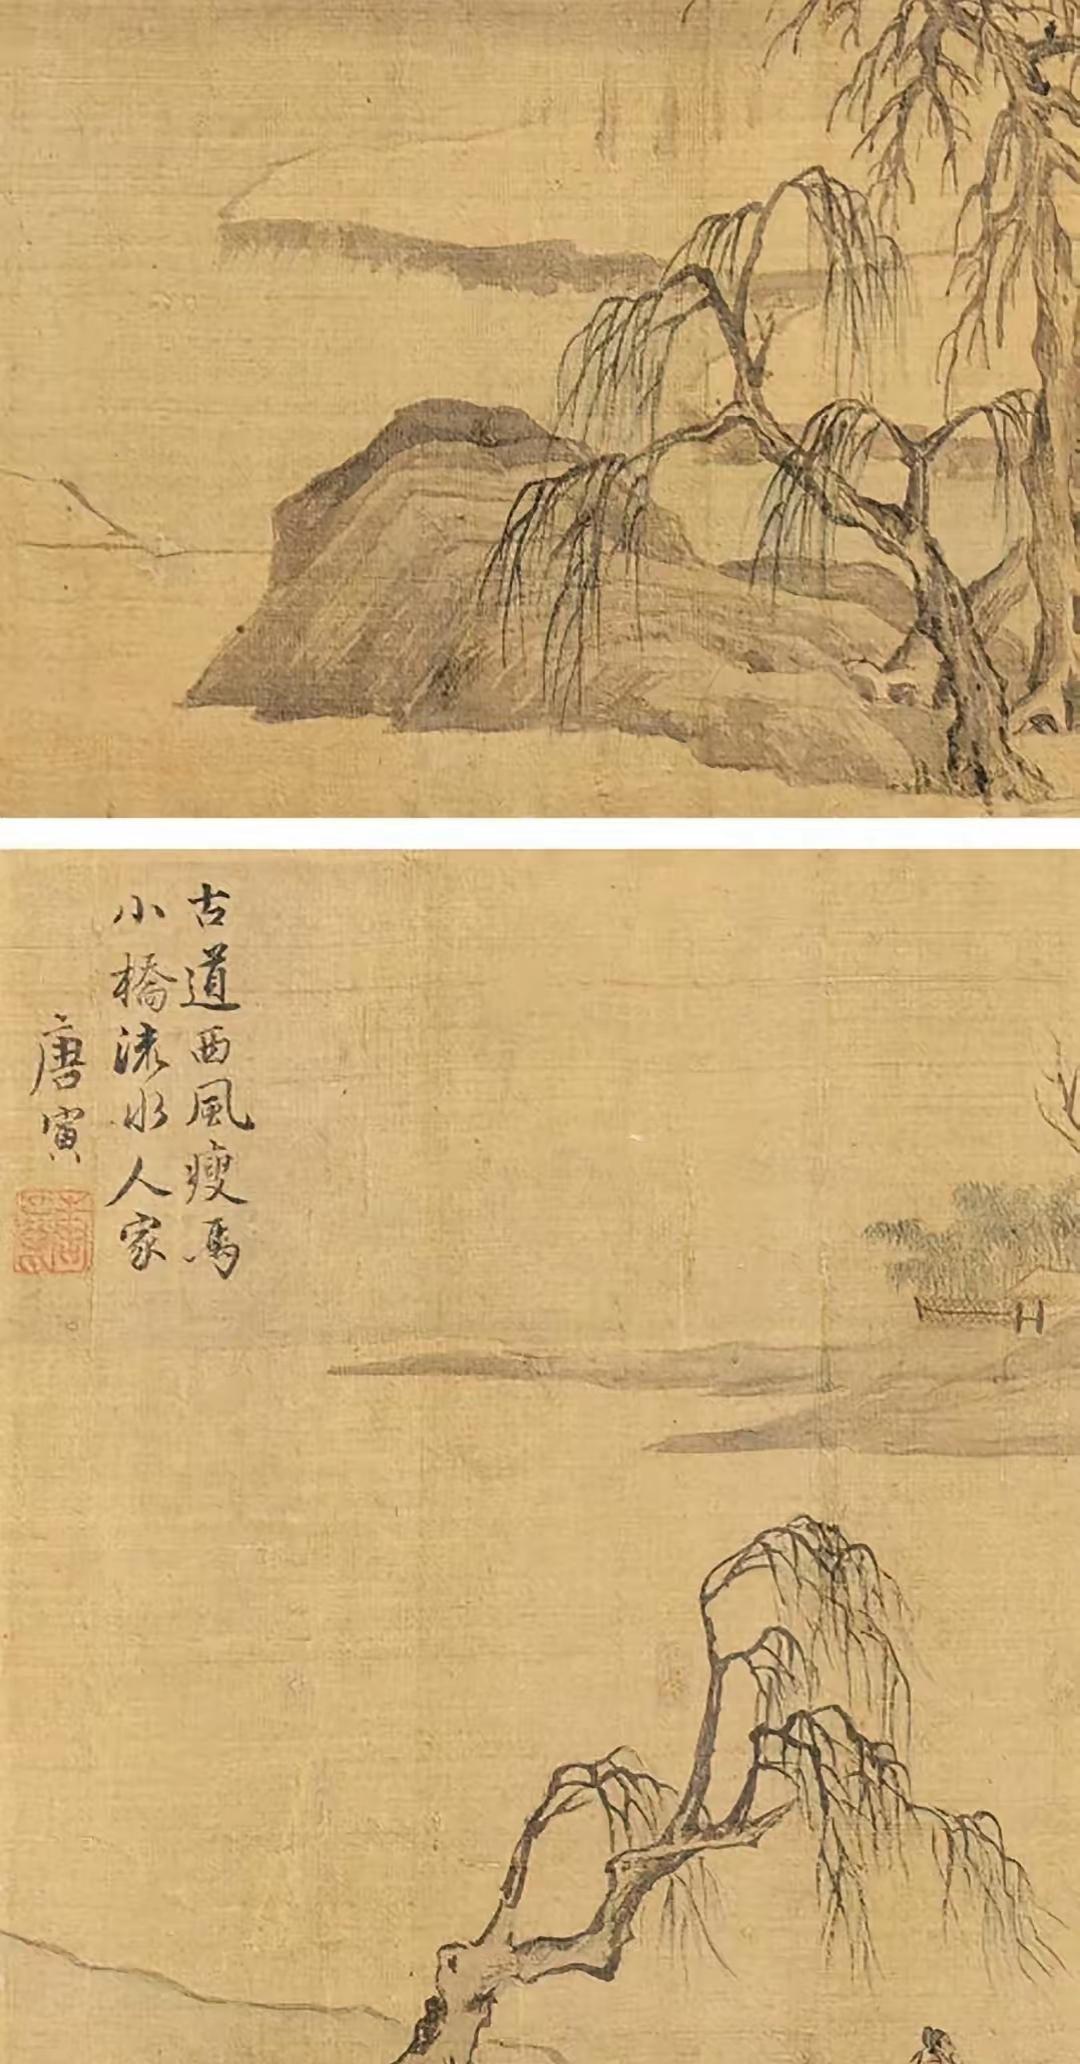 古道西風瘦馬
小橋流水人家
唐寅